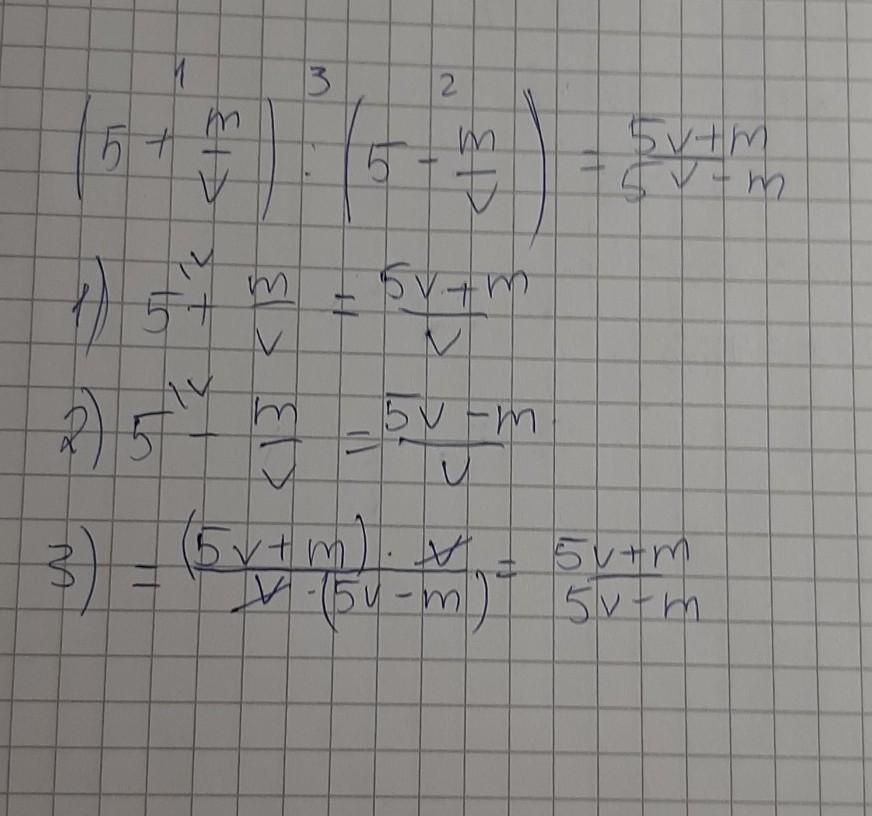 1 3 2
(5 + m/v) : (5 - m/v) = 5v+m/5v-m
1) 5\v + m/v = 5v+m/v
2) 5\v - m/v = 5v-m/v
3) = (5v+m)·v/v·(5v-m) = 5v+m/5v-m